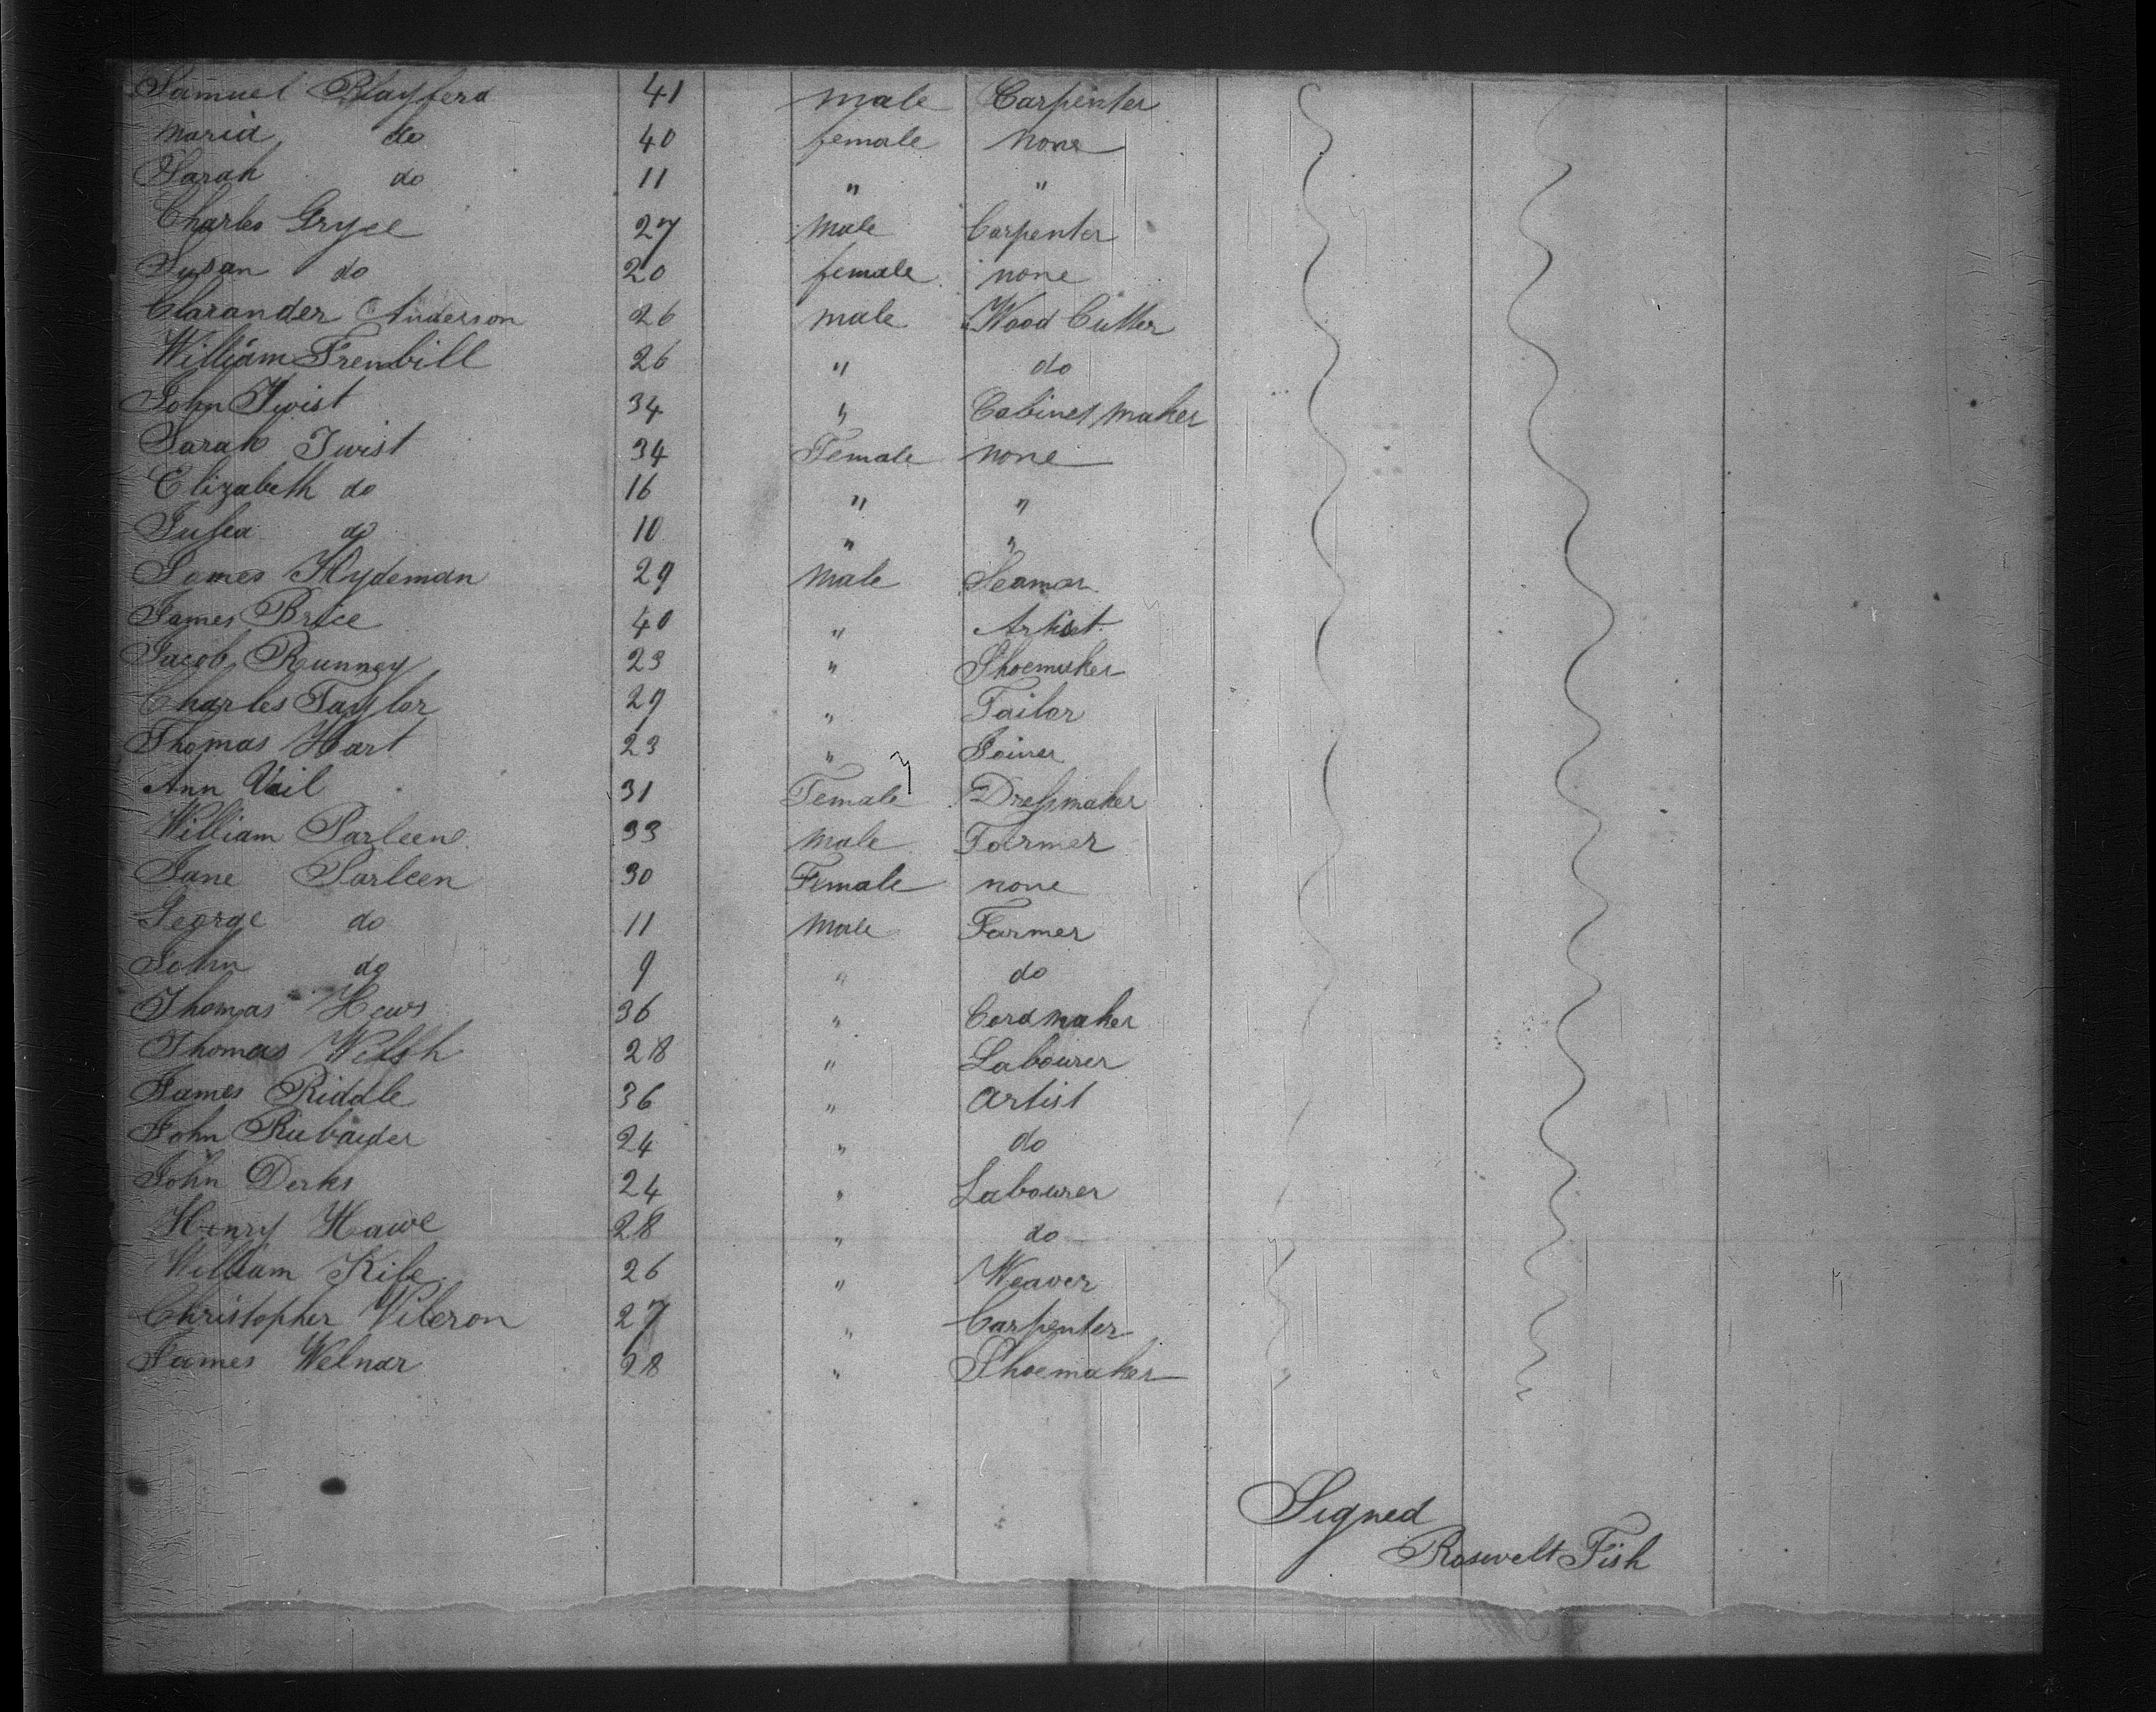 Samuel Playferd 41 male Carpenter
Maria do 40 female none
Sarah do 11 " "
Charles Gryce 27 Male Carpenter
Susan do 20 female none
Clarander Anderson 26 male Wood Cutter
William Trembill 26 " do
John Twist 34 " Cabinet maker
Sarah Twist 34 Female none
Elizabeth do 16 " "
Julia do 10 " "
James Hydeman 29 Male Seaman
James Brice 40 " Artist
Jacob Runney 23 " Shoemaker
Charles Taylor 29 " Tailor
Thomas Hart 23 " Joiner
Ann Vail 31 Female Dressmaker
William Parleen 33 Male Farmer
Jane Parleen 30 Female none
George do 11 Male Farmer
John do 9 " do
Thomas Hews 36 " Cordmaker
Thomas Welsh 28 " Labourer
James Riddle 36 " Artist
John 24 " do
John Derks 24 " Labourer
Henry Hawe 28 " do
William Kile 26 " Weaver
Christopher Vileron 27 " Carpenter
James Welnar 28 " Shoemaker
Signed
Rosevelt Fish